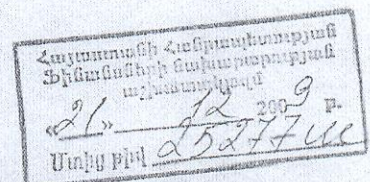 Հայաստանի Հանրապետության
Ֆինանսների նախարարության
աշխատակազմ
«21» 12 2009 թ.
Մտից թիվ 25277